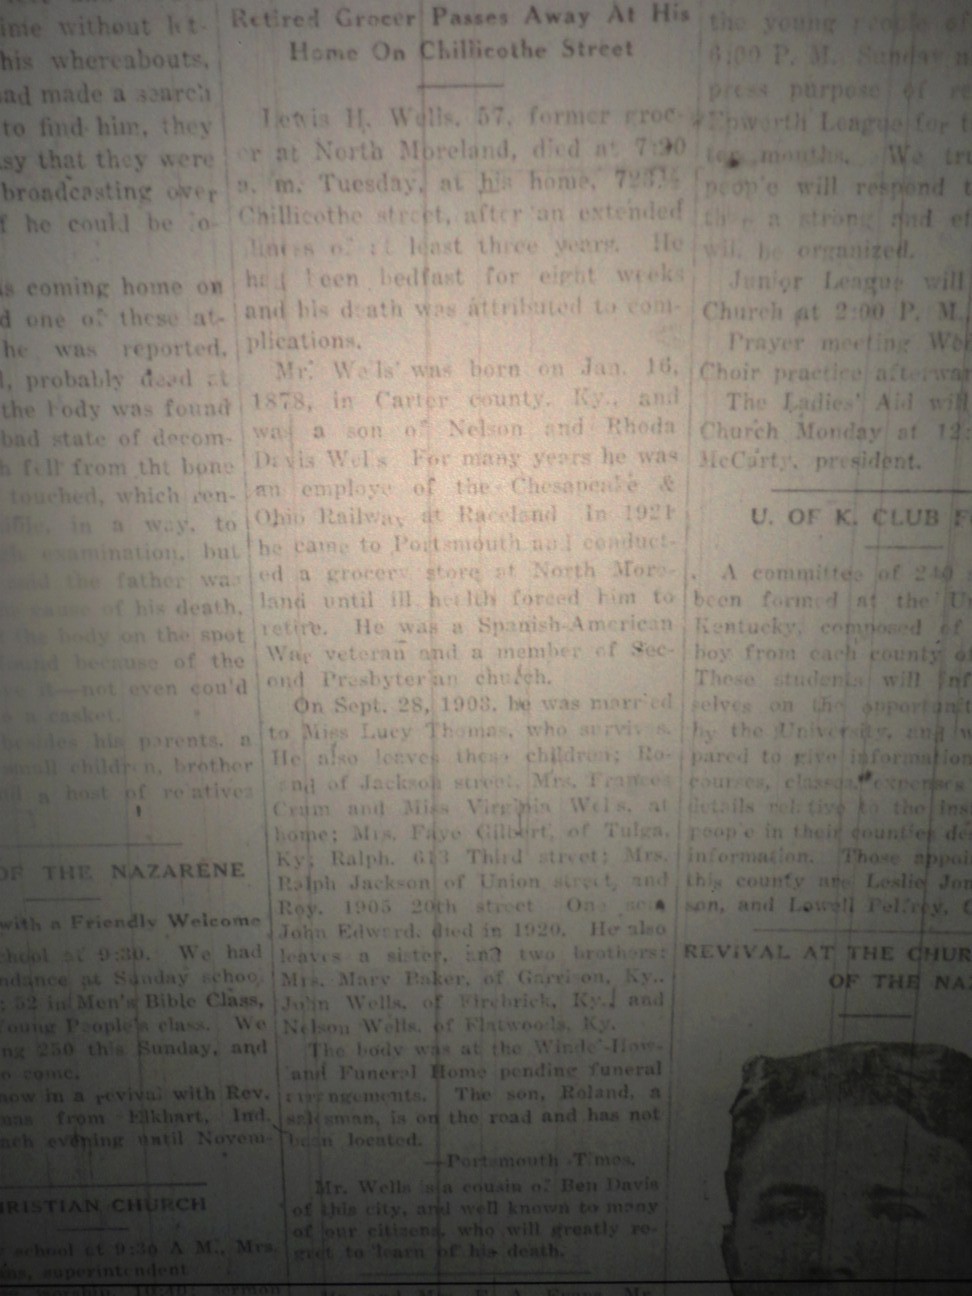 ime without let-
his whereabouts,
ad made a search
to find him, they
sy that they were
broadcasting over
f he could be lo-
s coming home on
d one of these at-
he was reported,
l, probably dead at
the body was found
bad state of decom-
h fell from tht bone
touched, which ren-
in a way, to
examination, but
said the father was
cause of his death.
the body on the spot
because of the
it—not even cou'd
a casket.
besides his parents, a
small children, brother
a host of relatives
OF THE NAZARENE
with a Friendly Welcome
school at 9:30. We had
ndance at Sunday school
52 in Men's Bible Class,
Young People's class. We
ng 250 this Sunday, and
come.
now in a revival with Rev.
mas from Elkhart, Ind.
ach evening until Novem-
RISTIAN CHURCH
school at 9:30 A M., Mrs.
superintendent
Retired Grocer Passes Away At His
Home On Chillicothe Street
Lewis H. Wells, 57, former groc-
er at North Moreland, died at
a. m. Tuesday, at his home,
Chillicothe street, after an extended
illness of at least three years. He
had been bedfast for eight weeks
and his death was attributed to com-
plications.
Mr. Wells was born on Jan. 16,
1878, in Carter county, Ky., and
was a son of Nelson and Rhoda
Davis Wells. For many years he was
an employe of the Chesapeake &
Ohio Railway at Raceland In
he came to Portsmouth and conduct-
ed a grocery store at North More-
land until ill health forced him to
retire. He was a Spanish-American
War veteran and a member of Sec-
ond Presbyterian church.
On Sept. 28, 1903, he was married
to Miss Lucy Thomas, who survives.
He also leaves these children: Ro-
land of Jackson street, Mrs. Frances
Crum and Miss Virginia Wells, at
home; Mrs. Faye Gilbert, of Tulga,
Ky; Ralph, 613 Third street; Mrs.
Ralph Jackson of Union street, and
Roy, 1905 20th street One son
John Edward, died in 1920. He also
leaves a sister, and two brothers:
Mrs. Mary Baker, of Garrison, Ky.,
John Wells, of Firebrick, Ky., and
Nelson Wells, of Flatwoods, Ky.
The body was at the
and Funeral Home pending funeral
arrangements. The son, Roland, a
salesman, is on the road and has not
been located.
—Portsmouth Times.
Mr. Wells is a cousin of Ben Davis
of this city, and well known to many
of our citizens, who will greatly re-
gret to learn of his death.
the young people of
6:00 P. M. Sunday
press purpose of
Epworth League for
months. We
people will respond
a strong and
will be organized.
Junior League will
Church at 2:00 P. M.
Prayer meeting
Choir practice
The Ladies' Aid will
Church Monday at
McCarty, president.
U. OF K. CLUB
A committee of 240
been formed at the
Kentucky, composed of
boy from each county
These students will
selves on the
by the University, and
pared to give information
courses, classes, expenses
details relative to the
people in their counties
information. Those
this county are Leslie
son, and Lowell Pelfrey,
REVIVAL AT THE
OF THE